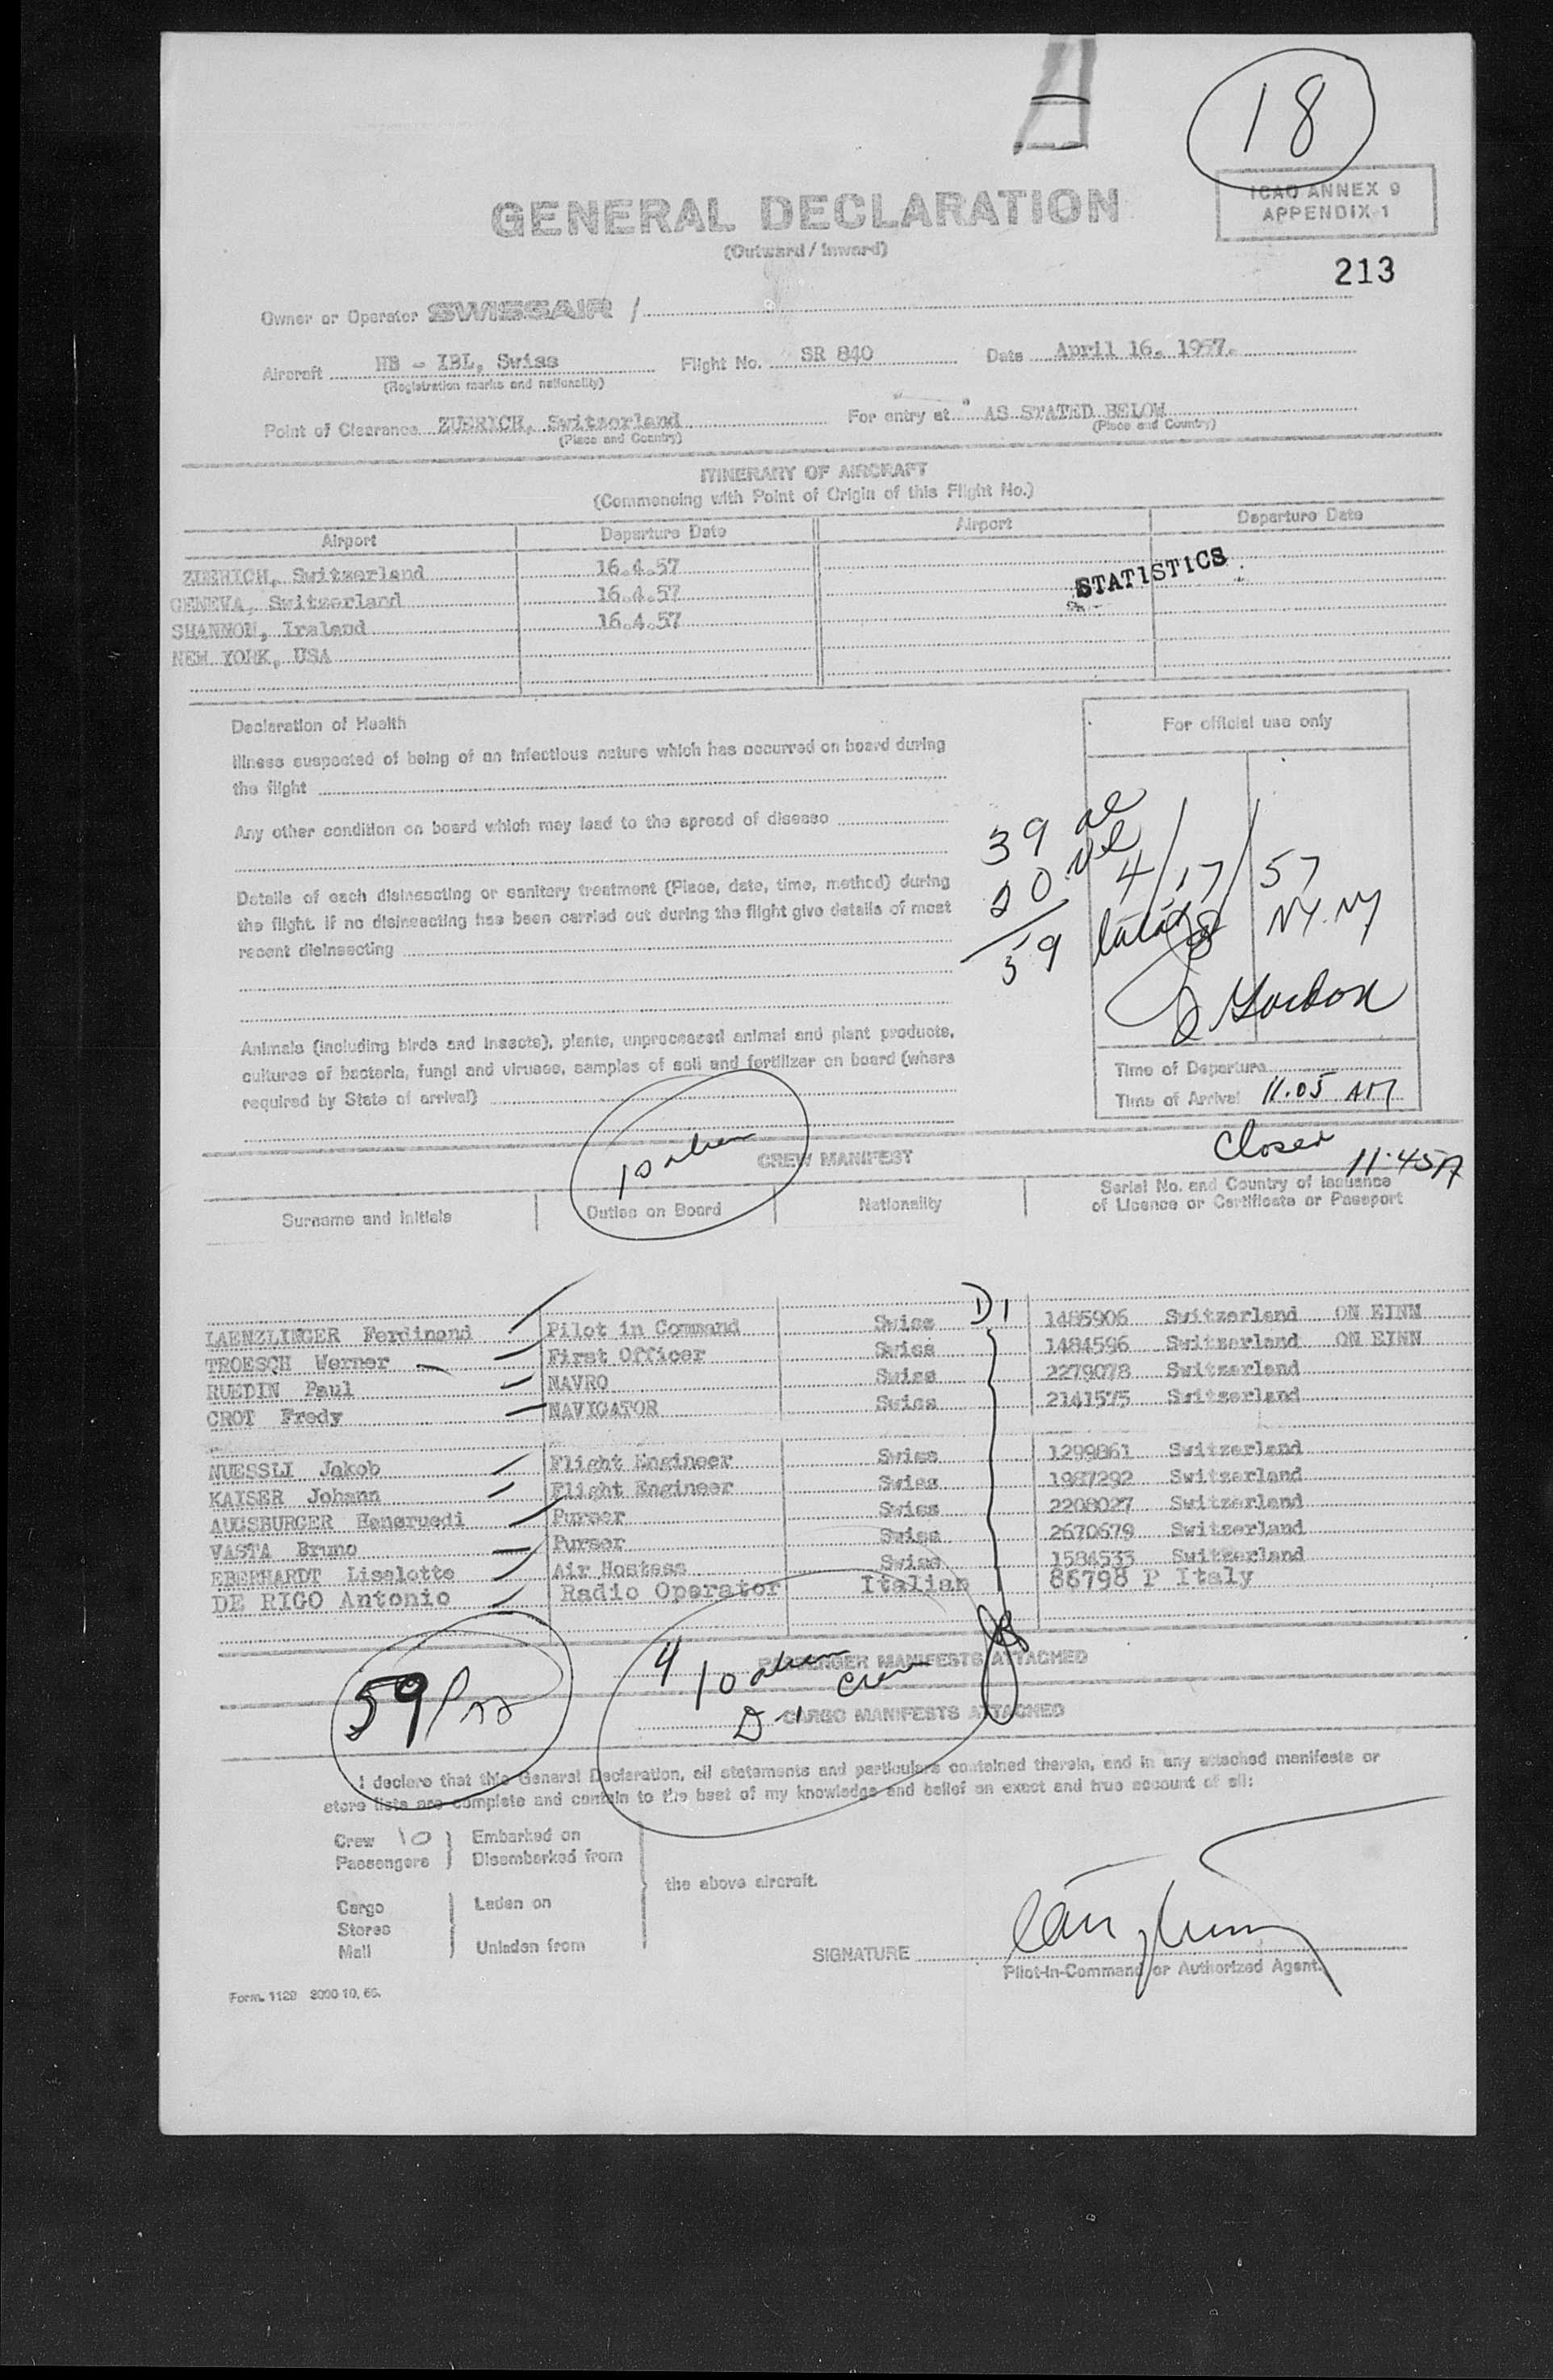 18
GENERAL DECLARATION
(Outward / Inward)
ICAO ANNEX 9
APPENDIX 1
213
Owner or Operator SWISSAIR /
Aircraft HB - IBL, Swiss Flight No. SR 840 Date April 16. 1957.
(Registration marks and nationality)
Point of Clearance ZUERICH, Switzerland For entry at AS STATED BELOW
(Place and Country) (Place and Country)
ITINERARY OF AIRCRAFT
(Commencing with Point of Origin of this Flight No.)
Airport Departure Date Airport Departure Date
ZUERICH, Switzerland 16.4.57
STATISTICS
GENEVA, Switzerland 16.4.57
SHANNON, Ireland 16.4.57
NEW YORK, USA
Declaration of Health
For official use only
Illness suspected of being of an infectious nature which has occurred on board during
the flight
Any other condition on board which may lead to the spread of disease
39
20
59
4/17/57
NY. NY
Gordon
Details of each disinsecting or sanitary treatment (Place, date, time, method) during
the flight. If no disinsecting has been carried out during the flight give details of most
recent disinsecting
Animals (including birds and insects), plants, unprocessed animal and plant products,
cultures of bacteria, fungi and viruses, samples of soil and fertilizer on board (where
required by State of arrival)
Time of Departure
Time of Arrival 11.05 AM
Closed 11:45A
10 alien
CREW MANIFEST
Surname and Initials Duties on Board Nationality Serial No. and Country of Issuance
of Licence or Certificate or Passport
D1
LAENZLINGER Ferdinand Pilot in Command Swiss 1485906 Switzerland ON EINN
TROESCH Werner First Officer Swiss 1484596 Switzerland ON EINN
RUEDIN Paul NAVRO Swiss 2279078 Switzerland
CROT Fredy NAVIGATOR Swiss 2141575 Switzerland
NUESSLI Jakob Flight Engineer Swiss 1299861 Switzerland
KAISER Johann Flight Engineer Swiss 1987292 Switzerland
AUGSBURGER Hansruedi Purser Swiss 2208027 Switzerland
VASTA Bruno Purser Swiss 2670679 Switzerland
EBERHARDT Liselotte Air Hostess Swiss 1584533 Switzerland
DE RIGO Antonio Radio Operator Italian 86798 P Italy
59 Pax
4 PASSENGER MANIFESTS ATTACHED
10 alien crew
D-1
CARGO MANIFESTS ATTACHED
I declare that this General Declaration, all statements and particulars contained therein, and in any attached manifests or
store lists are complete and contain to the best of my knowledge and belief an exact and true account of all:
Crew 10 Embarked on
Passengers Disembarked from
the above aircraft.
Cargo Laden on
Stores
Mail Unladen from
SIGNATURE
Pilot-in-Command or Authorized Agent.
Form. 1129